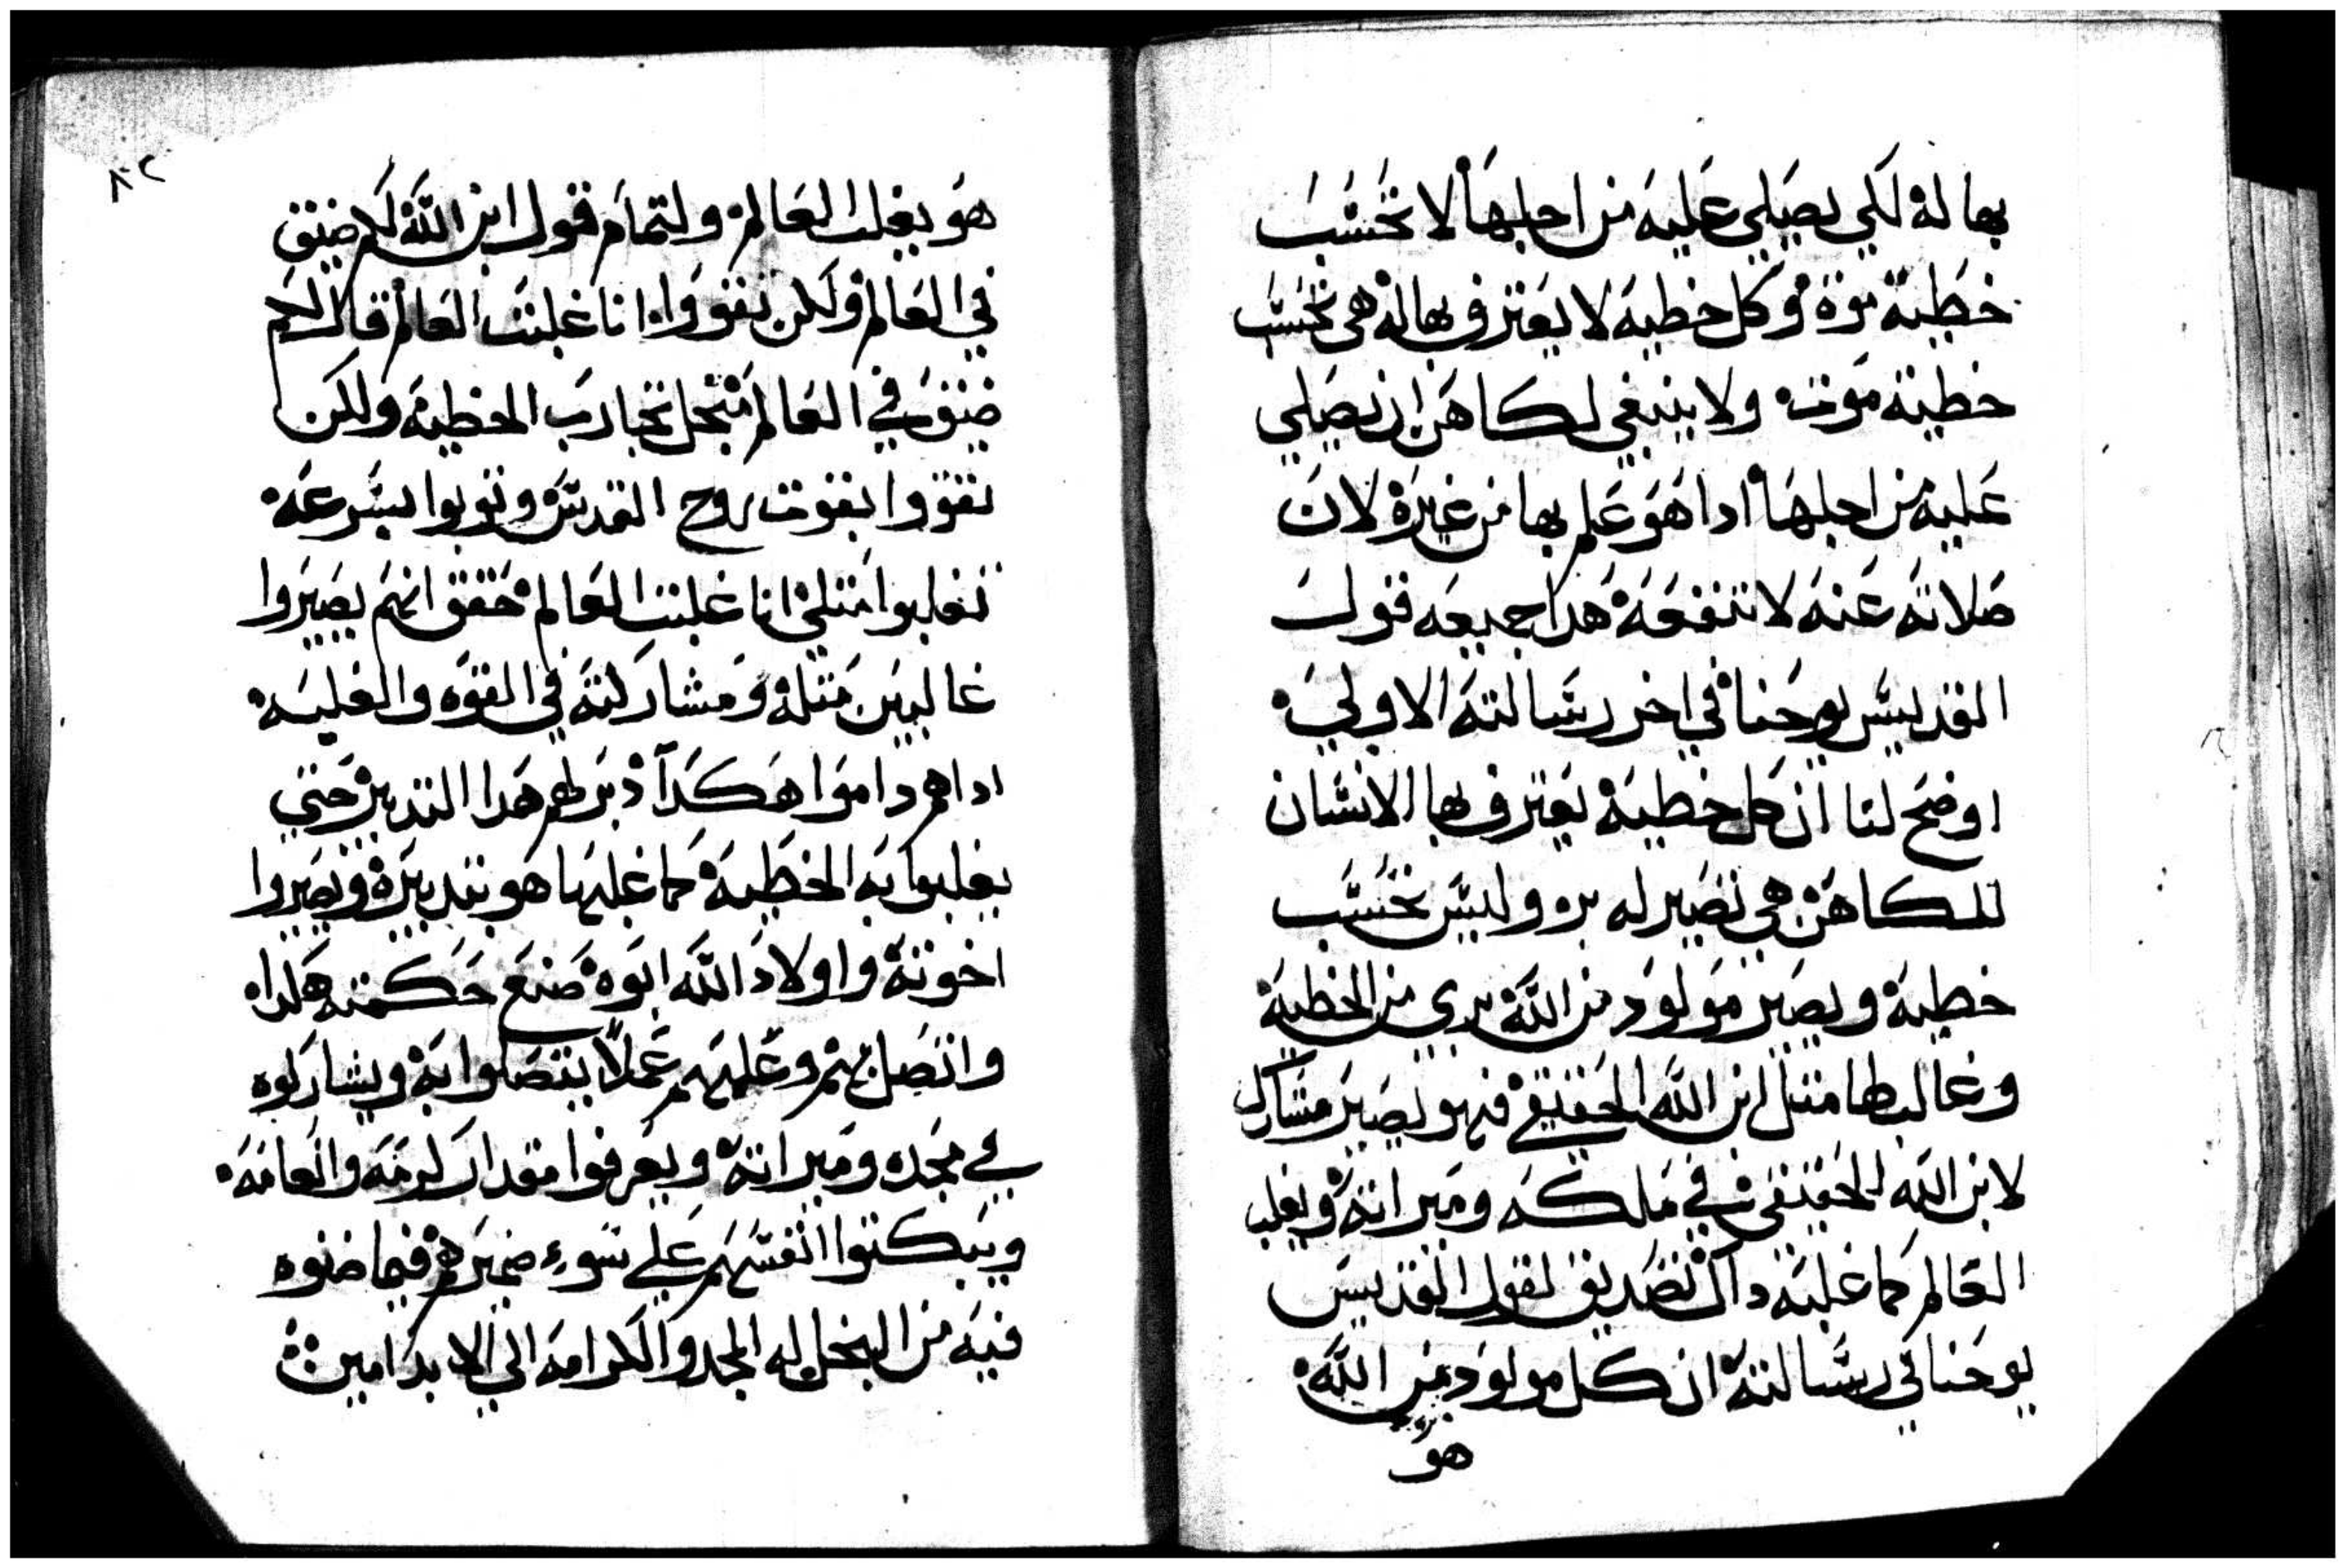 بها له لكي يصلي عليه من اجلها لا تحسب
خطية موة وكل خطية لا يعترف بها له هي تحسب
خطية موت ولا ينبغي لكاهن ان يصلي
عليه من اجلها ادا هو علم بها من غيره لان
صلاته عنه لا تنفعه هدا جميعه قول
القديس يوحنا في اخر رسالته الاولي
اوضح لنا ان كل خطية يعترف بها الانسان
للكاهن هي تصير له بر وليس تحسب
خطية ويصير مولود من الله بري من الخطية
وغالبها متل ابن الله الحقيقي فهو يصير مشارك
لابن الله الحقيقي في ملكه وميراته ويغلب
العالم كما غلبه داك تصديق لقول القديس
يوحنا في رسالته ان كل مولود من الله
هو
٨٢
هو يغلب العالم ولتمام قول ابن الله لكم ضيق
في العالم ولكن تقووا انا غلبت العالم قال لكم
ضيق في العالم من اجل تجارب الخطية ولكن
تقووا بقوت روح القدس وتوبوا بسرعه
تغلبوا متلي انا غلبت العالم حقق انهم يصيروا
غالبين متله ومشاركته في القوه والغلبه
اداهم داموا هكدا دبر لهم هدا التدبير حتي
يغلبوا به الخطية كما غلبها هو بتدبيره ويصيروا
اخوته واولاد الله ابوه صنع حكمته هكدا
واتصل بهم وعلمهم عملا يتصلوا به ويشاركوه
في مجده وميراته ويعرفوا مقدار كرمه وانعامه
ويبكتوا انفسهم علي سوء ضميرهم فيما ضنوه
فيه من البخل له المجد والكرامه الي الابد امين